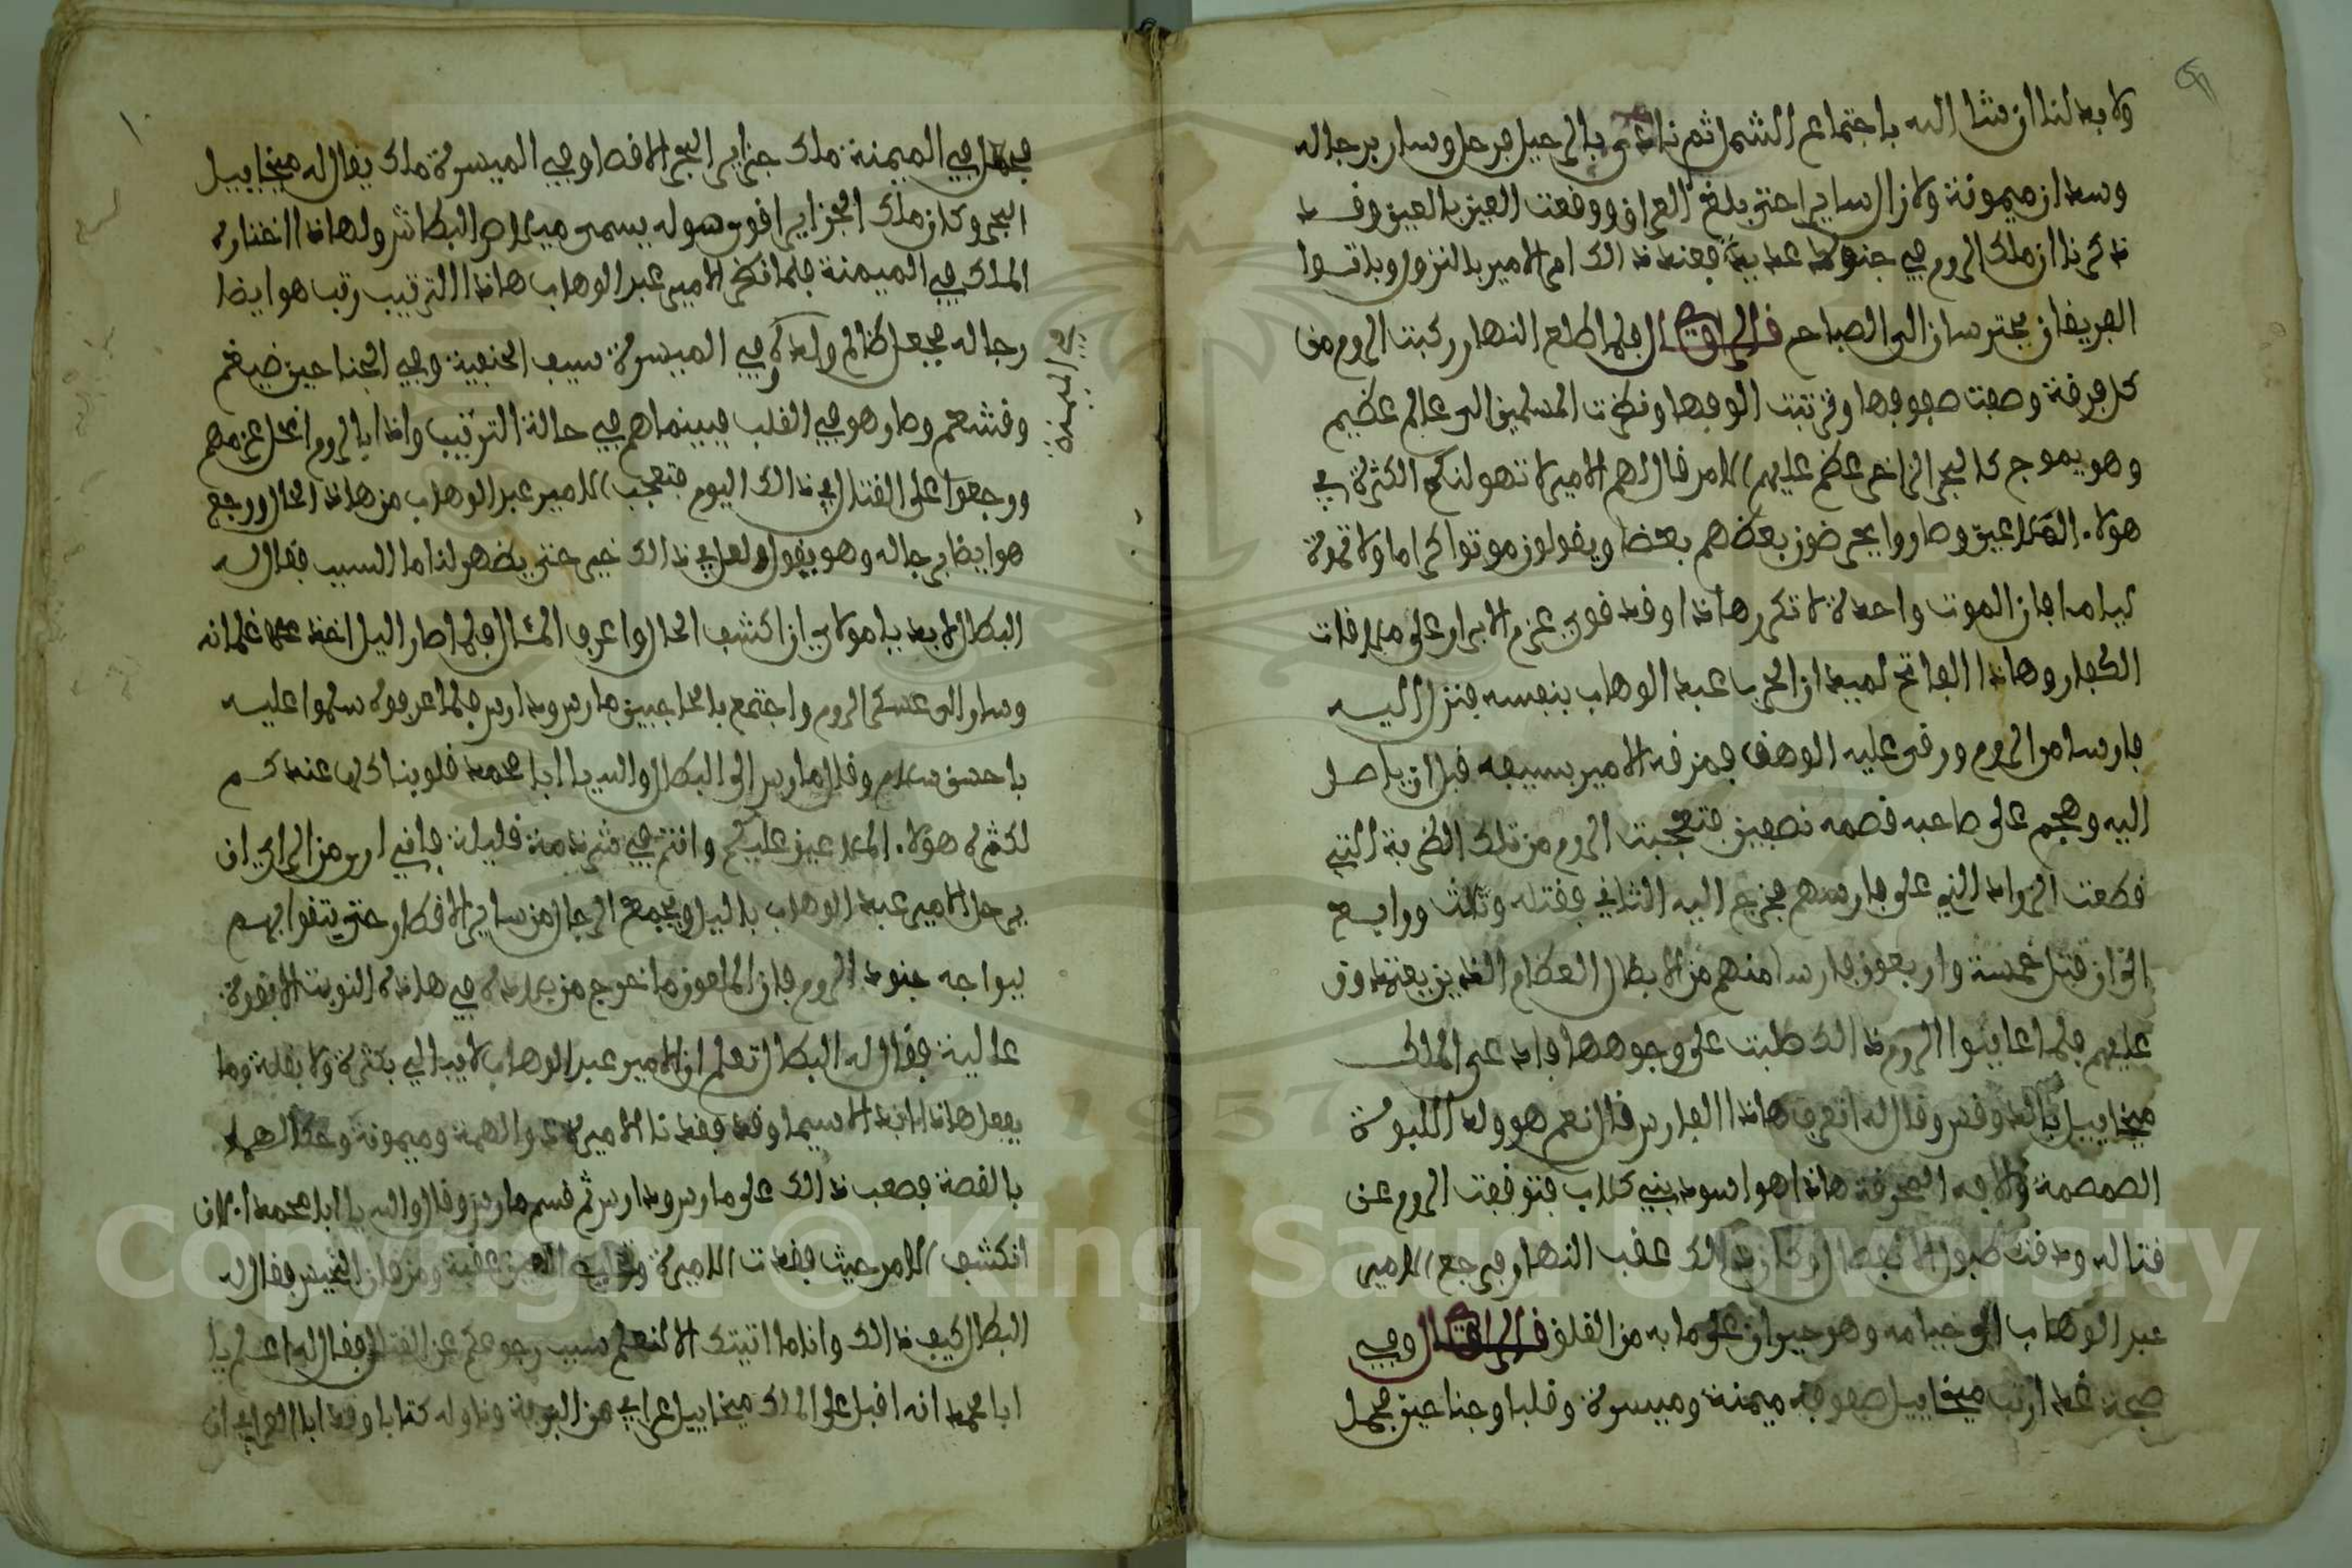 ولا بد لنا ان شا الله باجتماع الشمل ثم نادى بالرحيل فرحل وسار برجاله
وسودان ميمونة ولا زال سايرا حتى بلغ العراق ووقعت العين بالعين وقد
ذكرنا ان ملك الروم في جنود عديدة فعند ذالك امر الامير بالنزول وباتوا
الفريقان يحترسان الى الصباح قال الراوي فلما طلع النهار ركبت الروم من
كل فرقة وصفت صفوفها وترتبت الوفها ونظرت المسلمين الى عالم عظيم
وهو يموج كالبحر الزاخر عظم عليهم الامر فقال لهم الامير لا تهولنكم الكثرة في
هولاء الملاعين وصاروا يحرضون بعضهم بعضا ويقولون موتوا كراما ولا تموتوا
لياما فان الموت واحدة لا تكرر هاذا وقد قوي عزم الابرار على ملاقات
الكفار وهاذا الفاتح لميدان الحرب عبد الوهاب بنفسه فنزل اليه
فارسا من الروم ورقى عليه الوهق فمزقه الامير بسيفه قبل ان ياصل
اليه وهجم على صاحبه قصمه نصفين فتعجبت الروم من تلك الضربة التي
قطعت الزراد الذي على فارسهم فخرج اليه الثاني فقتله وثالث ورابع
الى ان قتل خمسة واربعون فارسا منهم من الابطال العظام الذين يعتمدون
عليهم فلما عاينوا الروم ذالك طبت على وجوهها فادعى الملك
ميخاييل بالدوقس وقال له اتعرف هاذا الفارس قال نعم هو ولد اللبوة
الصمصمة والافه المحرقة هاذا هو اسود بني كلاب فتوقفت الروم عن
قتاله ودقت طبول الانفصال وكان ذالك عقب النهار فرجع الامير
عبد الوهاب الى خيامه وهو حيران على ما به من القلق قال الراوي وفي
صبحة غد ارتب ميخاييل صفوفه ميمنة وميسرة وقلبا وجناحين فجعل
فجعل في الميمنة ملك جزاير البحر الاقصا وفي الميسرة ملك يقال له ميخاييل
البحر وكان ملك الجزاير اقوى هوله يسمى ميلاص البطاش ولهاذا اختاره
الملك في الميمنة فلما نظر الامير عبد الوهاب هاذا الترتيب رتب هو ايضا
رجاله فجعل ظالم ولده في الميسرة سيف الحنفية وفي الجناحين ضيغم
في الميمنة
وقشعم وصار هو في القلب فبينما هم في حالة الترتيب واذا بالروم انحل عزمهم
ورجعوا على القتال في ذالك اليوم فتعجب الامير عبد الوهاب من هاذا الحال ورجع
هو ايضا برجاله وهو يقول ولعل في ذالك خير حتى يظهر لنا ما السبب فقال له
البطال لا بد يا مولاي ان اكشف الحال واعرف المئال فلما صار اليل اخذ معه غلمانه
وسار الى عسكر الروم واجتمع بالحاجبين مارس ودارس فلما عرفوه سلموا عليه
باحسن سلام وقال مارس الى البطال والله يا ابا محمد قلوبنا كلها عندكم
لكثرة هولاء الملاعين عليكم وانتم في شرذمة قليلة فاني ارى من الراي ان
يرحل الامير عبد الوهاب باليل ويجمع الرجال من ساير الاقطار حتى يتقوا بهم
ليواجه جنود الروم فان الملعون ما خرج من بلاده في هاذه النوبة الا بقوة
عالية فقال له البطال تعلم ان الامير عبد الوهاب لا يبالي بكثرة ولا بقلة وما
يفعل هاذا ابدا لا سيما وقد فقدنا الاميرة ذوا الهمة وميمونة وحكا لهما
بالقصة فصعب ذالك على مارس ودارس ثم قسم مارس وقال والله يا ابا محمد الان
انكشف الامر حيث فقدت الاميرة وغايب اللعين عقبة ومن فان الجيش فقال له
البطال كيف ذالك وانا ما اتيتك الا لنعلم سبب رجوعكم عن القتال فقال له اعلم يا
ابا محمد انه اقبل على الملك ميخاييل عرابي من البرية وناوله كتابا وقد ابا العرابي ان